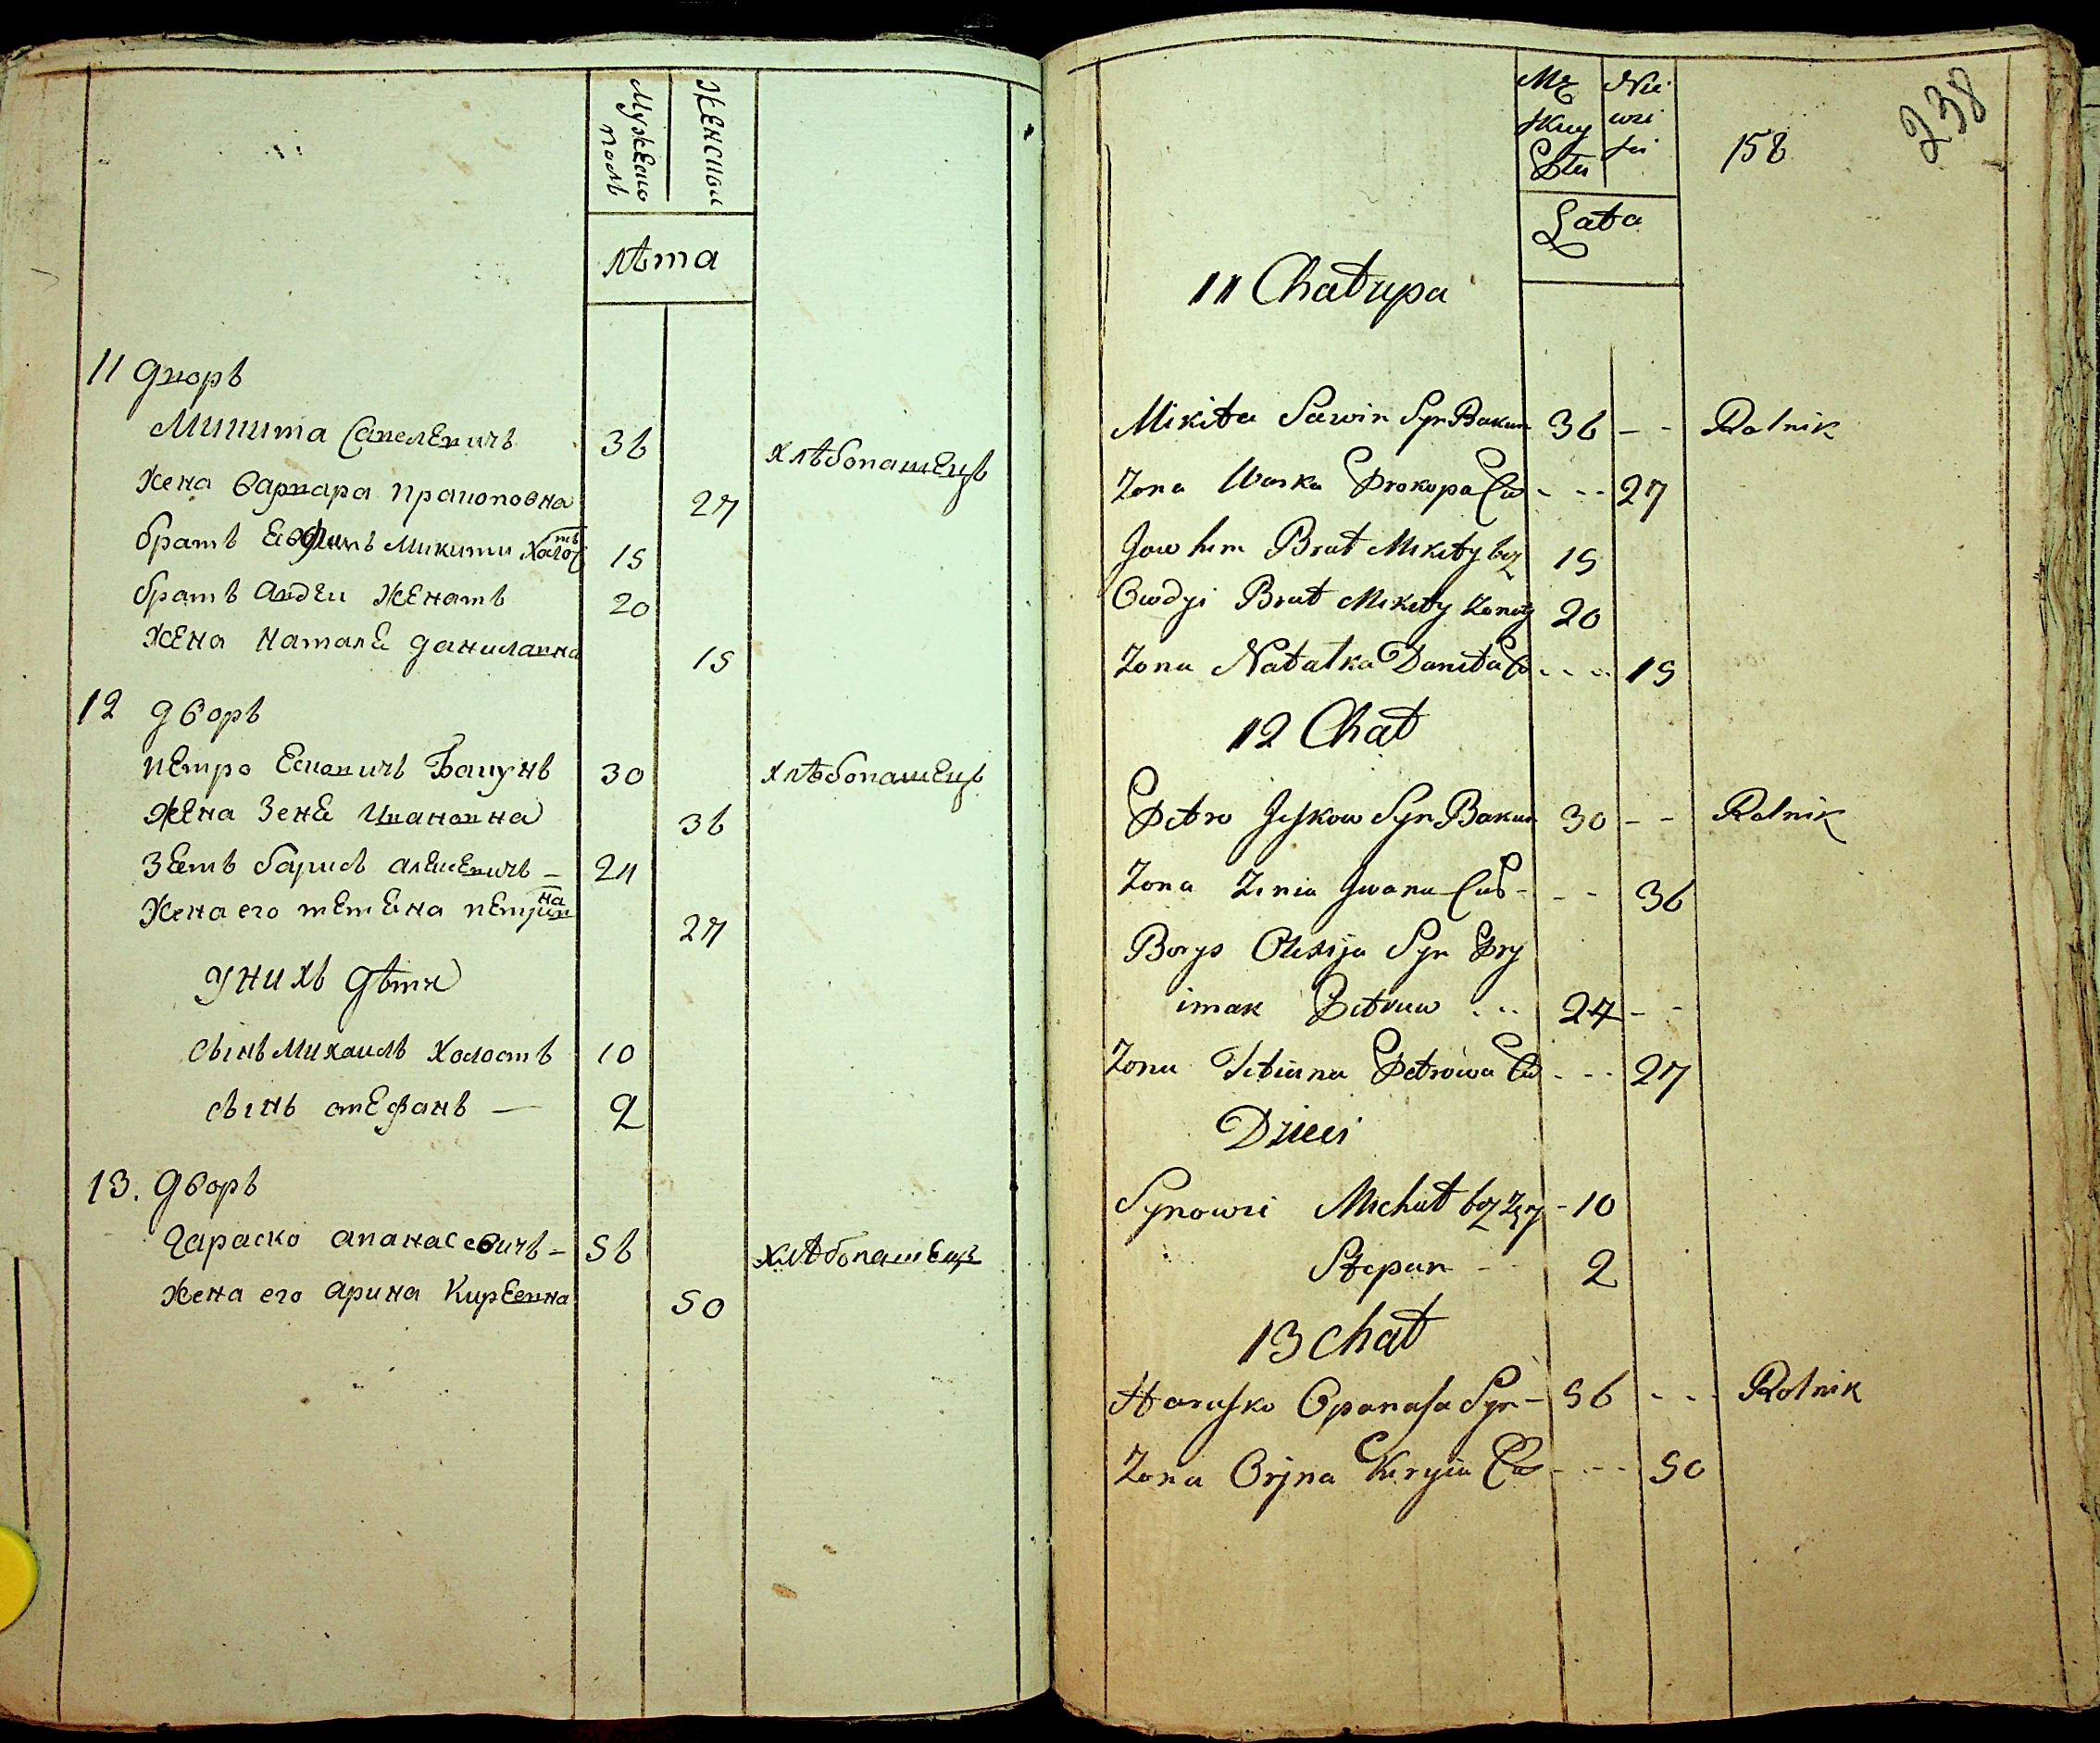 Мужеско
полъ
Женскои
лѣта
11 дворъ
Микита Савелевичъ 36 хлѣбопашецъ
жена варвара прокоповна 27
братъ Евфимъ Микити холостъ 15
братъ авдеи женатъ 20
жена натале даниловна 15
12 дворъ
петро Есковичъ Бакунъ 30 хлѣбопашецъ
жена Зене Ивановна 36
Зеть барисъ алексевичъ – 24
жена его тетена петровна 27
унихъ дѣти
сынъ михаилъ холостъ 10
сынъ стефанъ — 2
13. дворъ
Гараско апанасовичъ – 56 хлѣбопашецъ
жена его арина киреевна 50
Mę Nie
skiey wie
Płci ści
158
238
Lata
11 Chałupa
Mikita Sawin Syn Bakun 36 – – Rolnik
Zona Warka Prokopa Cor - - - 27
Jowhim Brat Mikity bez 15
Owdyi Brat Mikity Zonaty 20
Zona Natalka Daniła Co - - - - 15
12 Chat
Petro Jeskow Syn Bakun 30 – – Rolnik
Zona Zenia Iwana Cor - - - 36
Borys Oleksija Syn Pry
imak Petruw . . . 24 – –
Zona Tetiana Petrowa Co - - - 27
Dzieci
Synowie Michał bez Zey - 10
Stepan - - 2
13 Chat
Harasko Opanasa Syn – 56 - - - Rolnik
Zona Oryna Kiryia Co - - - - 50